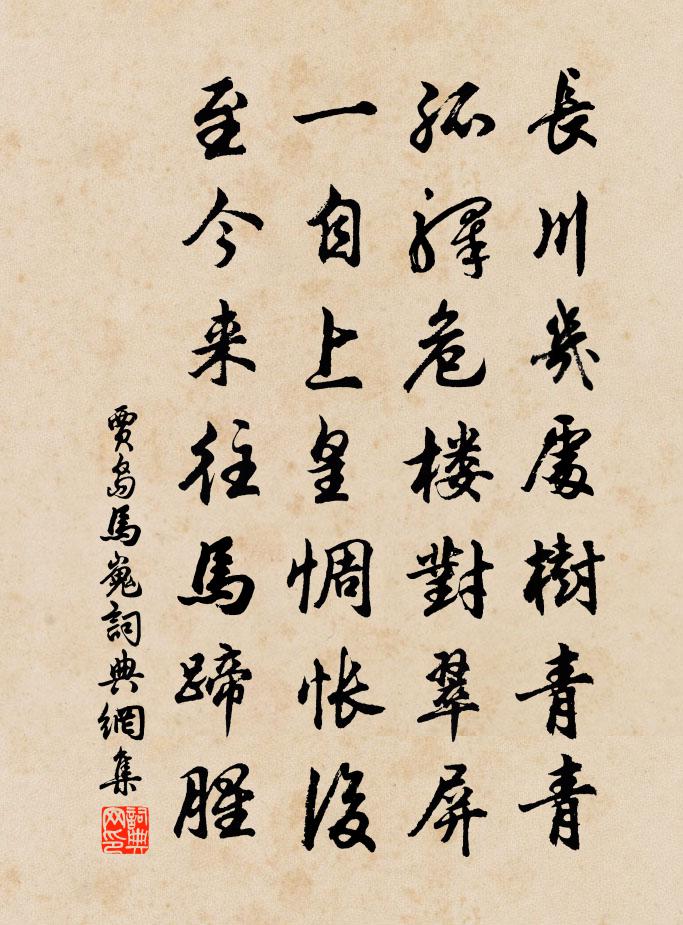 長川幾處樹青青
孤驛危樓對翠屏
一自上皇惆悵後
至今来往馬蹄腥
賈島馬嵬詞典網集
詞典網印